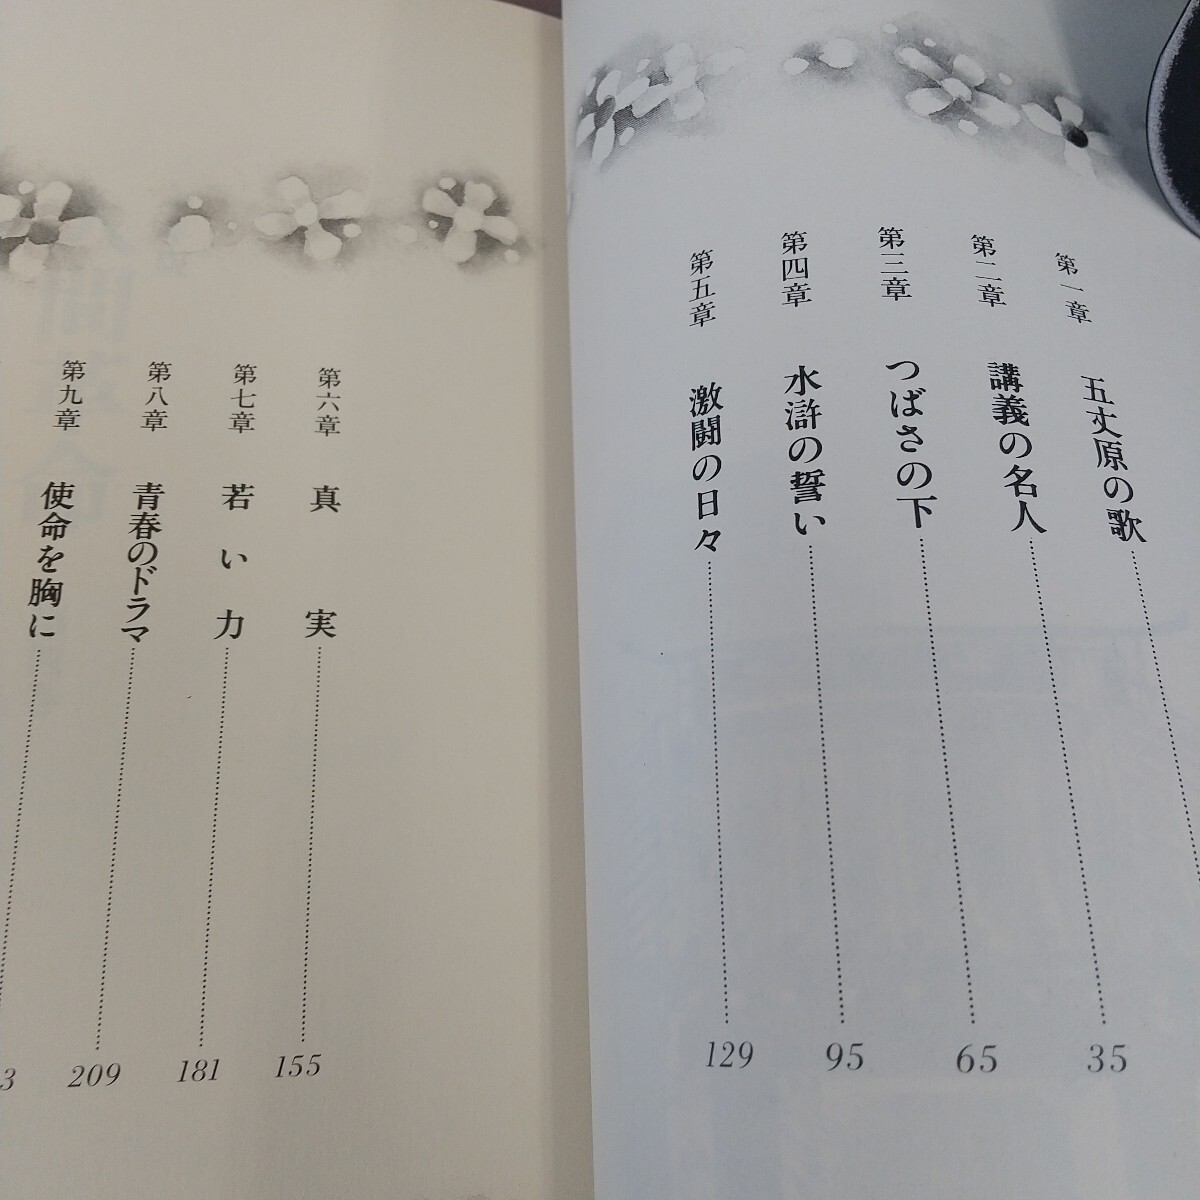 第一章 五丈原の歌
第二章 講義の名人 35
第三章 つばさの下 65
第四章 水滸の誓い 95
第五章 激闘の日々 129
第六章 真実 155
第七章 若い力 181
第八章 青春のドラマ 209
第九章 使命を胸に 3